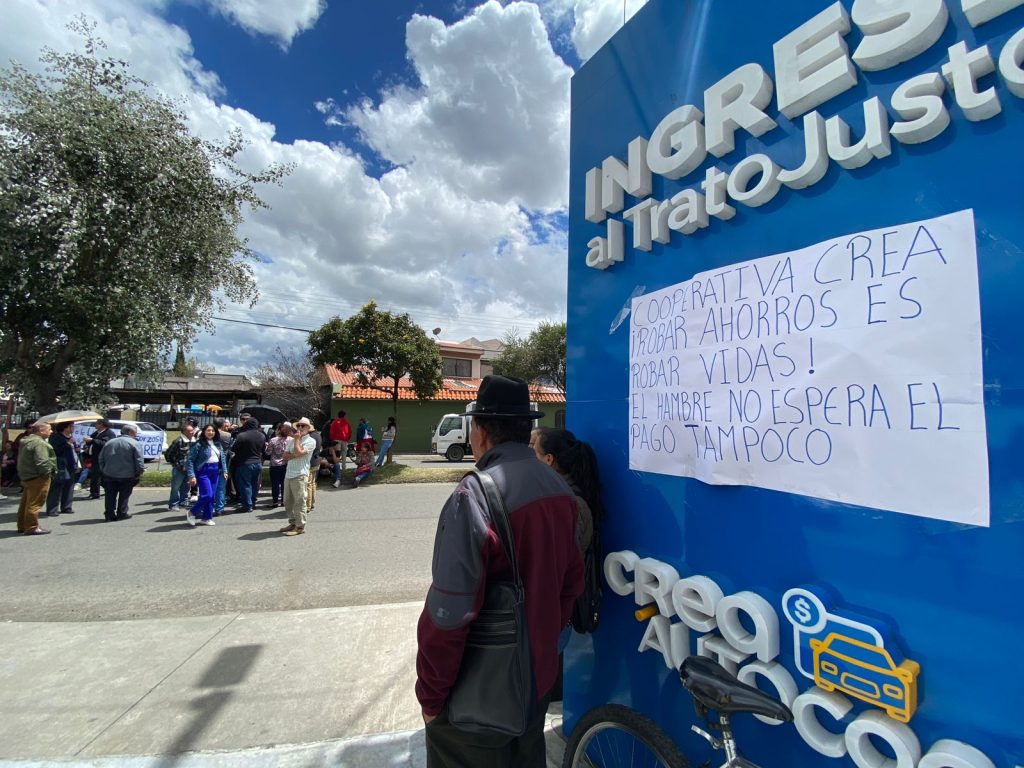 INGRESE
al Trato Justo
COOPERATIVA CREA
¡ROBAR AHORROS ES
ROBAR VIDAS!
EL HAMBRE NO ESPERA EL
PAGO TAMPOCO
crea
AUTO
$
CREA